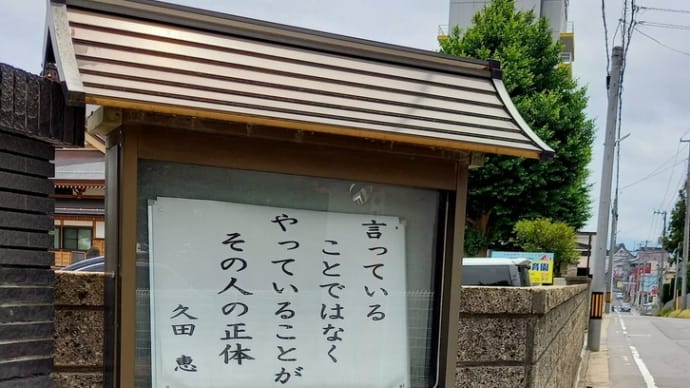 言っている
ことではなく
やっていることが
その人の正体
久田 恵
育園